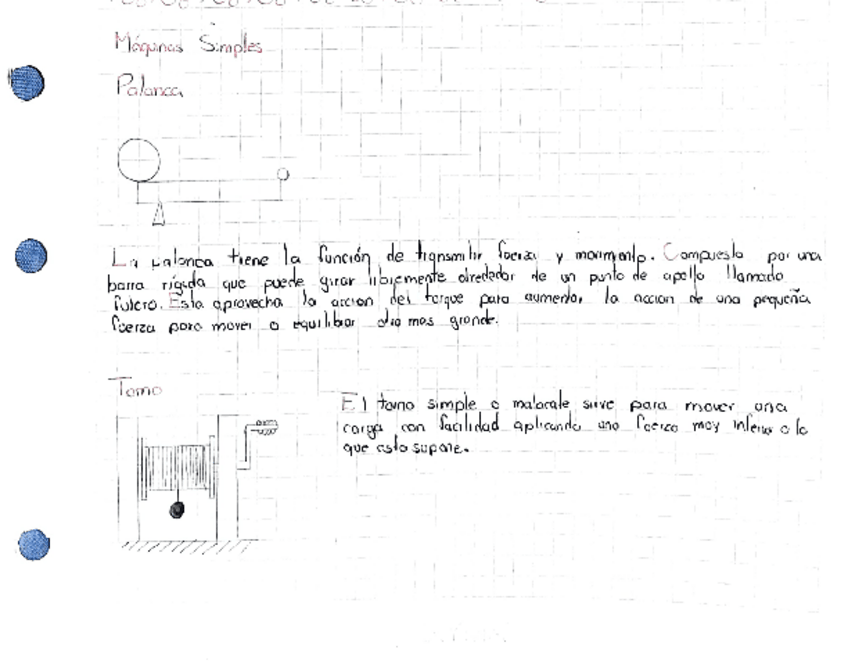 Máquinas Simples
Palanca
La palanca tiene la función de transmitir fuerza y movimiento. Compuesta por una
barra rígida que puede girar libremente alrededor de un punto de apollo llamado
fulcro. Esta aprovecha la acción del torque para aumentar la acción de una pequeña
fuerza para mover o equilibrar otra mas grande.
Torno
El torno simple o malacate sirve para mover una
carga con facilidad aplicando una fuerza muy inferior a la
que esta supone.